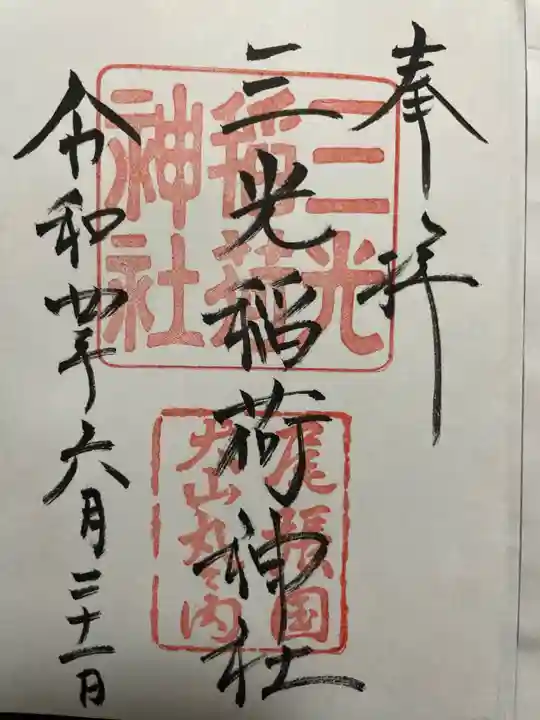 奉拝
三光稲荷神社
令和四年六月二十一日
三光
稲荷
神社
尾張国
犬山丸之内